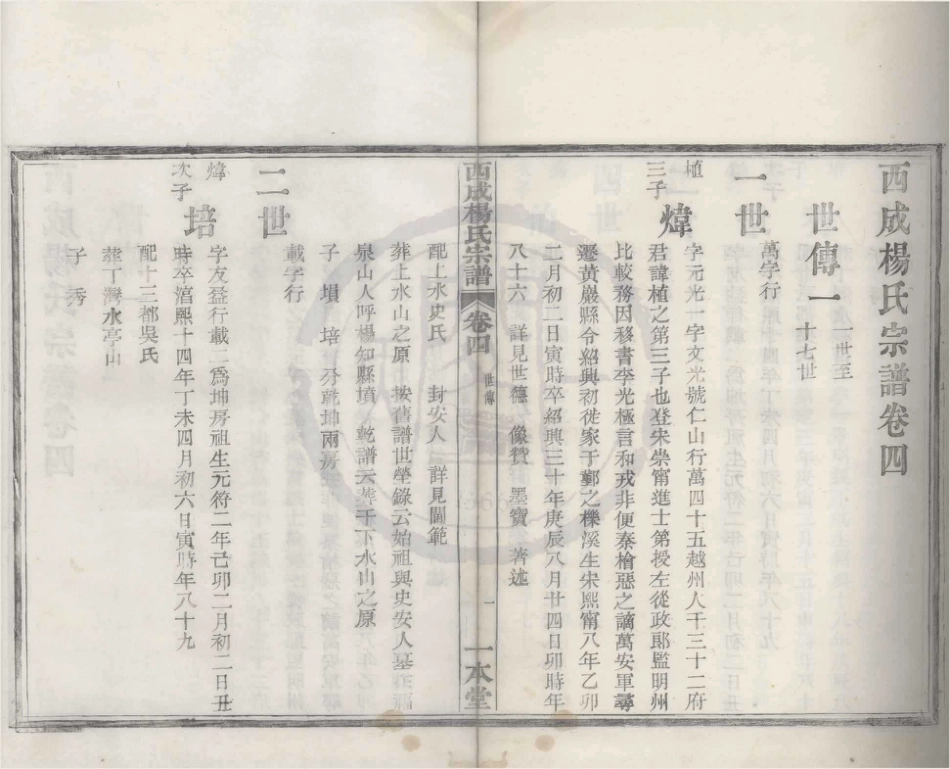 西成楊氏宗譜卷四
世傳一 一世至
十七世
一世 萬字行
植
三子
煒 字元光一字文光號仁山行萬四十五越州人千三十二府
君諱植之第三子也登宋崇甯進士第授左從政郎監明州
比較務因移書李光極言和戎非便秦檜惡之謫萬安軍尋
遷黃巖縣令紹興初徙家于鄞之櫟溪生宋熙甯八年乙卯
二月初二日寅時卒紹興三十年庚辰八月廿四日卯時年
八十六 詳見世德 像贊 墨寶 著述
西成楊氏宗譜 卷四 世傳 一 一本堂
配上水史氏 封安人 詳見閫範
葬上水山之原 按舊譜世榮錄云始祖與史安人墓在福
泉山人呼楊知縣墳 乾譜云葬于下水山之原
子 塤 培 分乾坤兩房
二世 載字行
煒
次子
培 字友益行載二為坤房祖生元符二年己卯二月初二日丑
時卒淳熙十四年丁未四月初六日寅時年八十九
配十三都吳氏
葬丁灣水亭山
子 秀